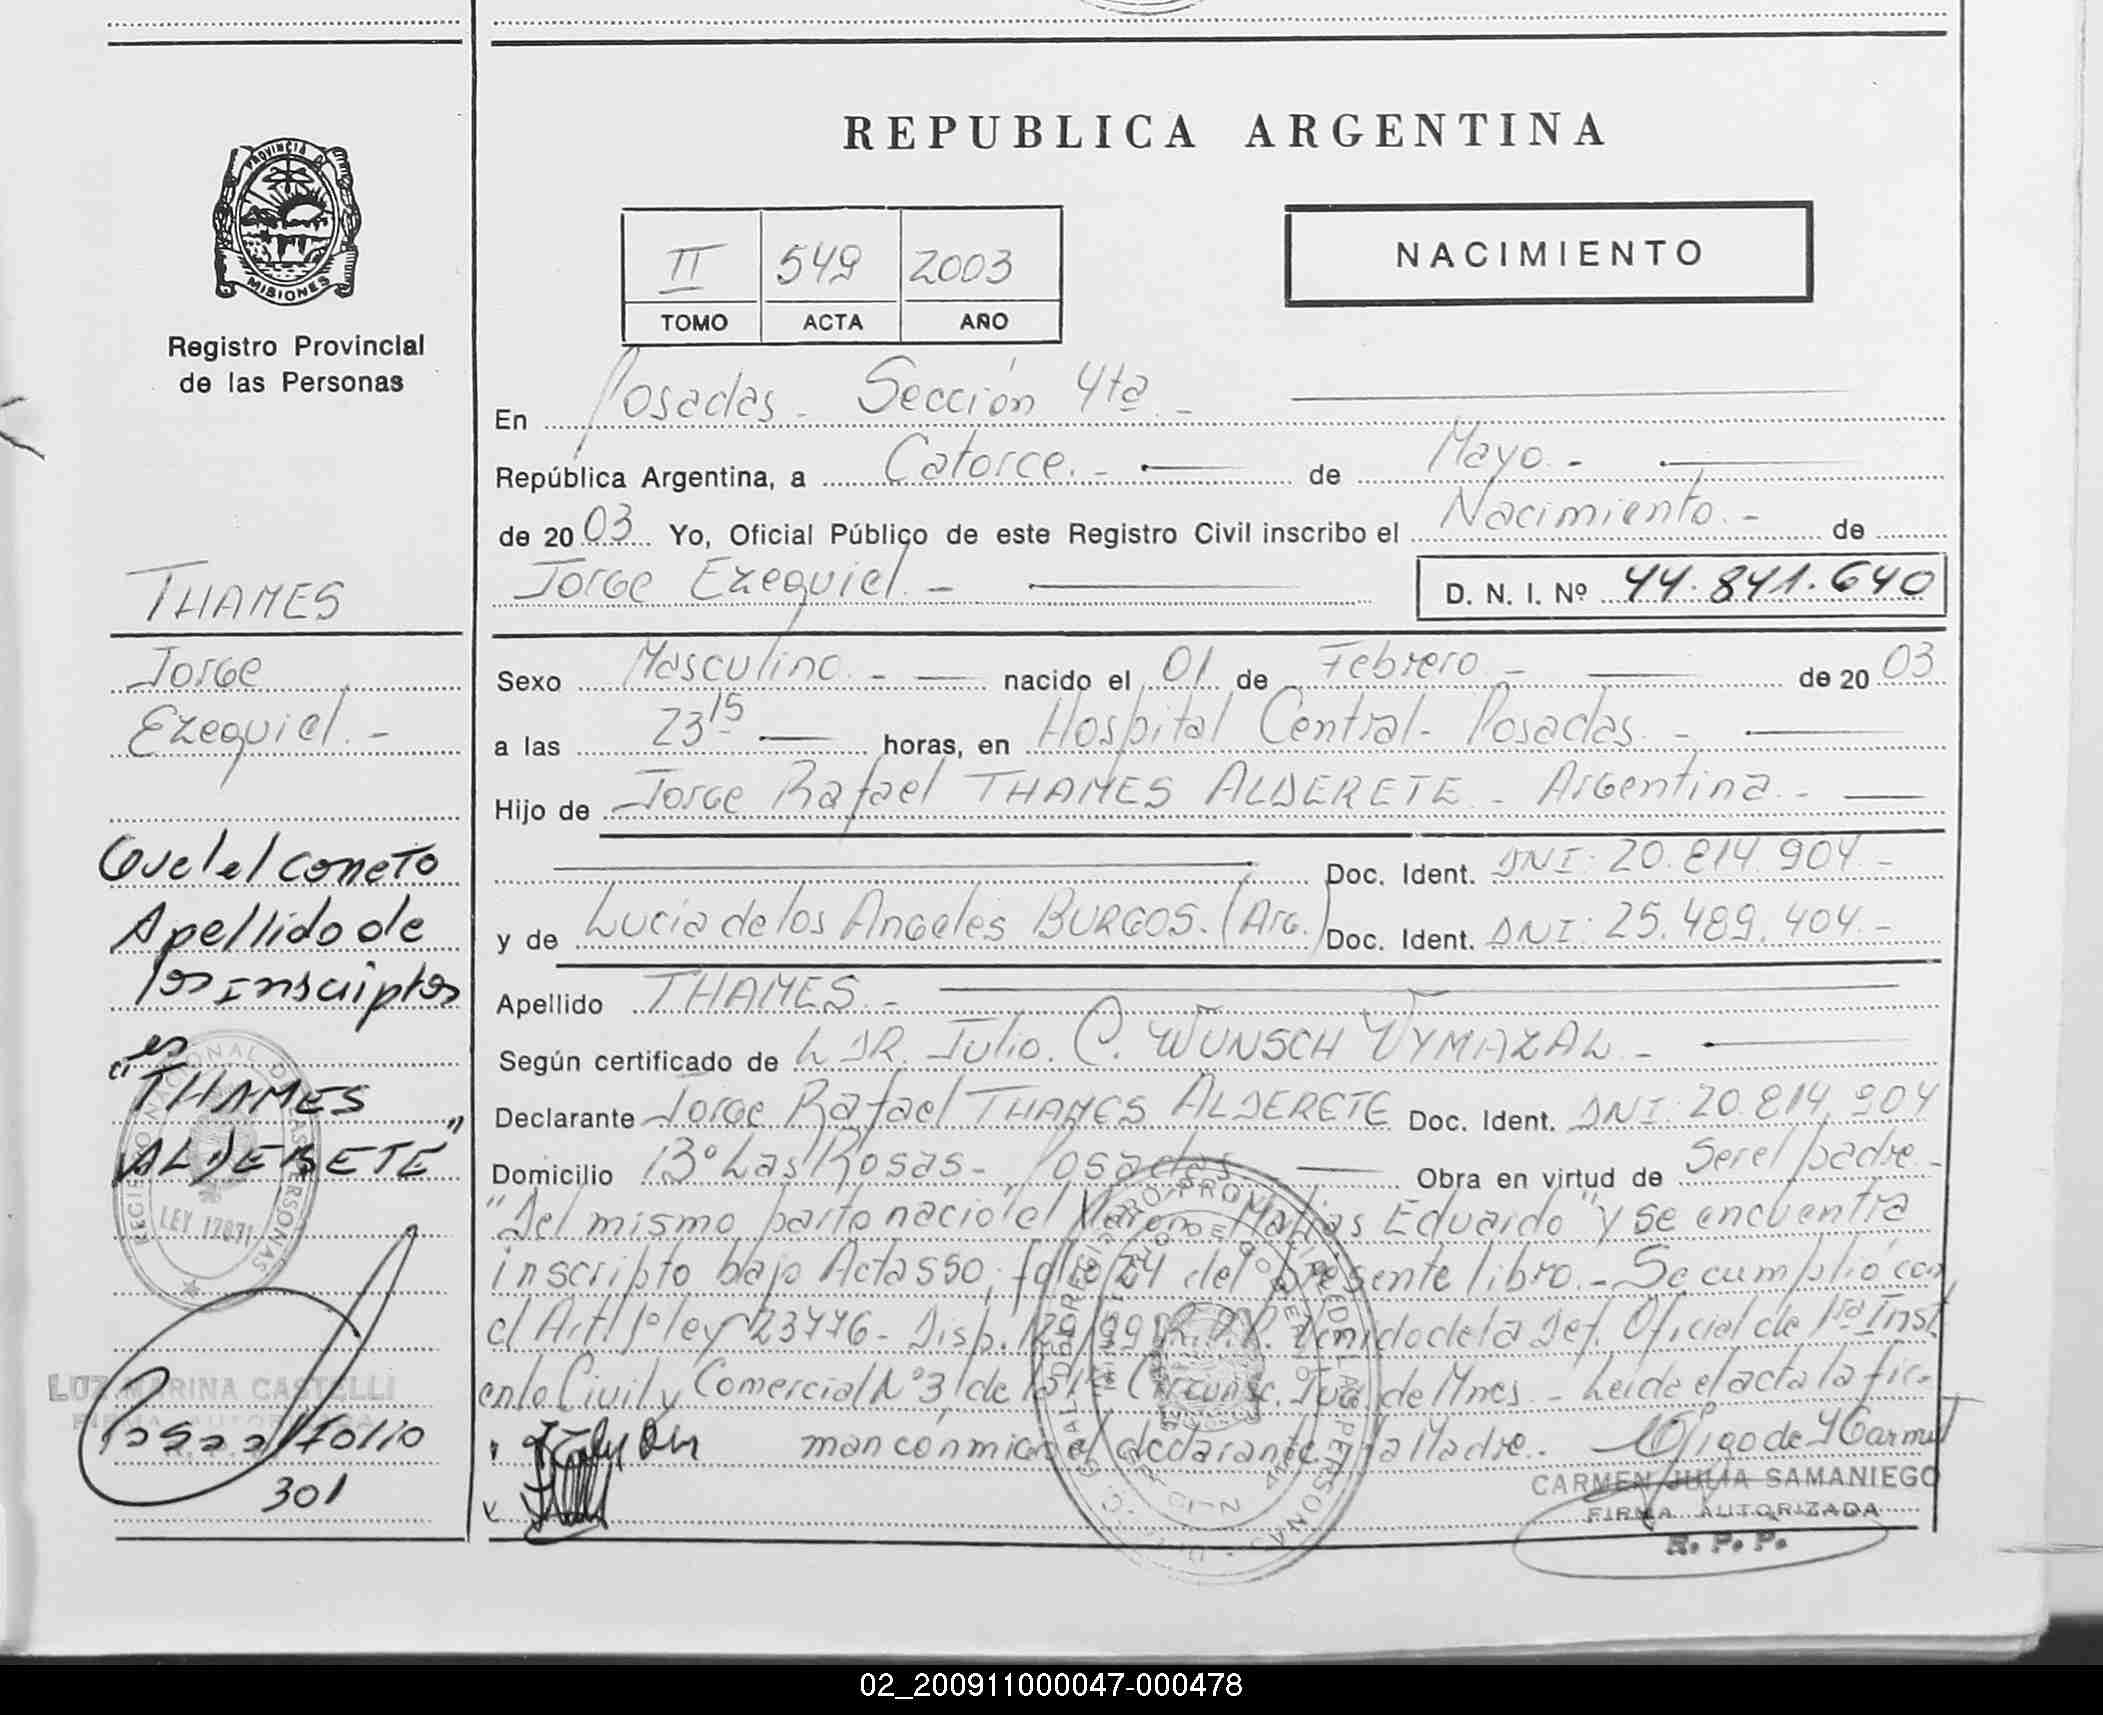 REPUBLICA ARGENTINA
PROVINCIA D
MISIONES
Registro Provincial
de las Personas
NACIMIENTO
II 549 2003
TOMO ACTA AÑO
En Posadas - Sección 4ta. -
República Argentina, a Catorce. - de Mayo. -
de 20 03 Yo, Oficial Público de este Registro Civil inscribo el Nacimiento. - de
Jorge Ezequiel. - D. N. I. Nº 44.841.640
Sexo Masculino. - nacido el 01 de Febrero - de 20 03
a las 23 15 horas, en Hospital Central - Posadas. -
Hijo de Jorge Rafael THAMES ALDERETE - Argentina. -
Doc. Ident. DNI: 20.814.904 -
y de Lucia de los Angeles BURGOS. (Arg.) Doc. Ident. DNI: 25.489.404 -
Apellido THAMES. -
Según certificado de L DR. Julio. C. WUNSCH VYMAZAL -
Declarante Jorge Rafael THAMES ALDERETE Doc. Ident. DNI: 20.814.904
Domicilio Bº Las Rosas - Posadas Obra en virtud de Ser el padre -
"Del mismo parto nació el Varón Matias Eduardo" y se encuentra
inscripto bajo Acta 550, folio 24 del presente libro. - Se cumplió con
el Art 1º ley 23776 - Disp. 129/99 R.P.P. Venido de la Def. Oficial de 1ra Inst.
en lo Civil y Comercial Nº 3, de la 1ra Circunsc. Jud. de Mnes. - Leída el acta la fir-
man conmigo el declarante y la Madre.
CARMEN JULIA SAMANIEGO
FIRMA AUTORIZADA
R. P. P.
THAMES
Jorge
Ezequiel. -
Que el correcto
Apellido de
los inscriptos
es
"THAMES
ALDERETE"
LEY 17671
LUZ MARINA CASTELLI
FIRMA AUTORIZADA
Pasa a folio
301
02_200911000047-000478